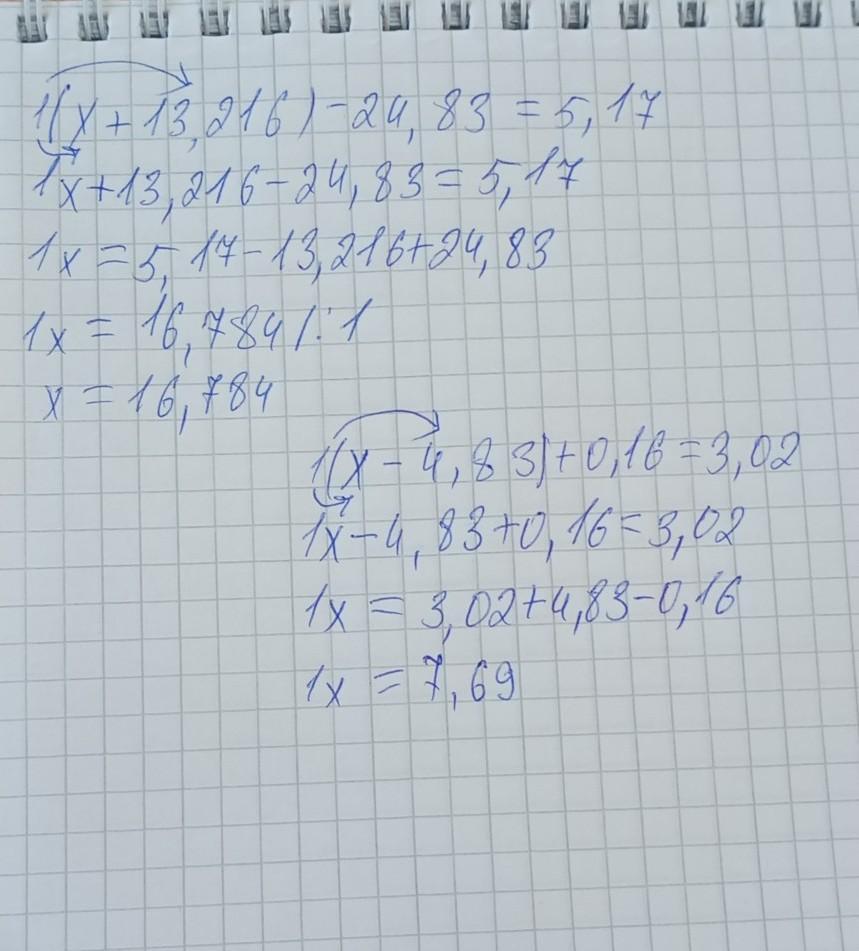 1(x+13,216)-24,83=5,17
1x+13,216-24,83=5,17
1x=5,17-13,216+24,83
1x=16,784/:1
x=16,784
1(x-4,83)+0,16=3,02
1x-4,83+0,16=3,02
1x=3,02+4,83-0,16
1x=7,69